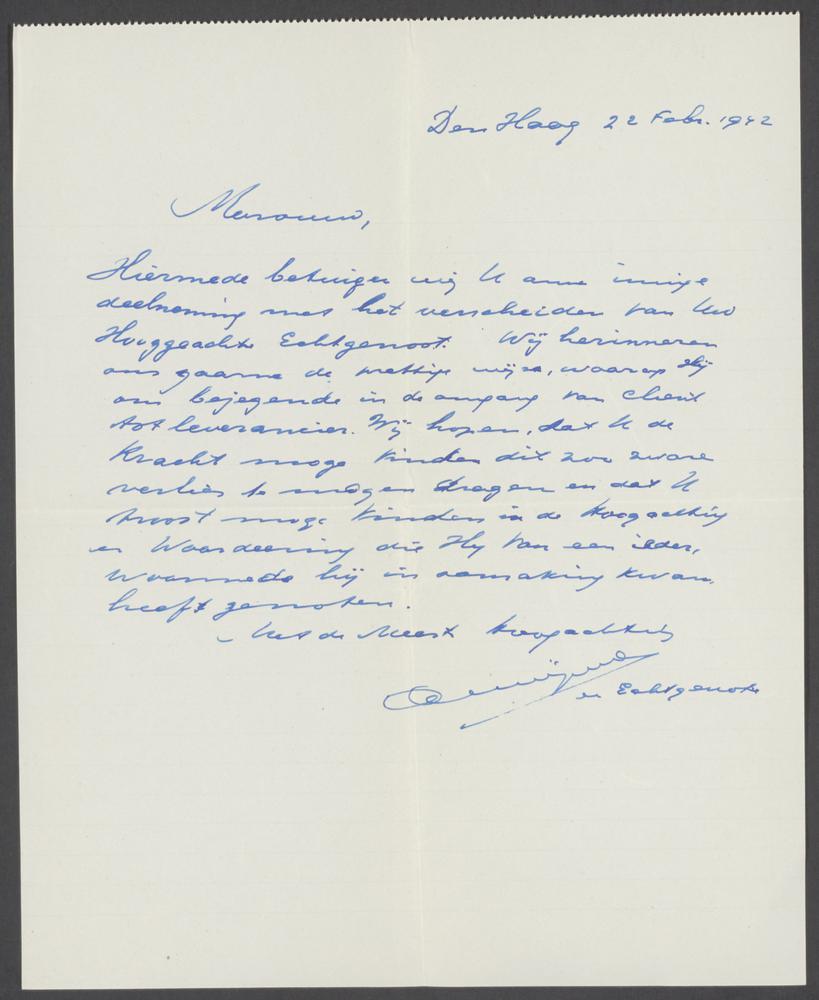 Den Haag 22 Febr. 1942
Mevrouw,
Hiermede betuigen wij U onze innige
deelneming met het verscheiden van Uw
Hooggeachte Echtgenoot. Wij herinneren
ons gaarne de prettige wijze, waarop Hij
ons bejegende in de omgang van Client
tot leverancier. Wij hopen, dat U de
Kracht moge vinden dit zoo zware
verlies te mogen dragen en dat U
troost moge vinden in de Hoogachting
en Waardeering die Hij van een ieder,
waarmede hij in aanraking kwam,
heeft genoten.
Met de Meest Hoogachting
en Echtgenote